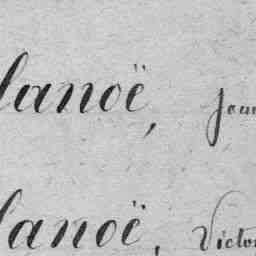 lanoë, Jean
lanoë, Victo